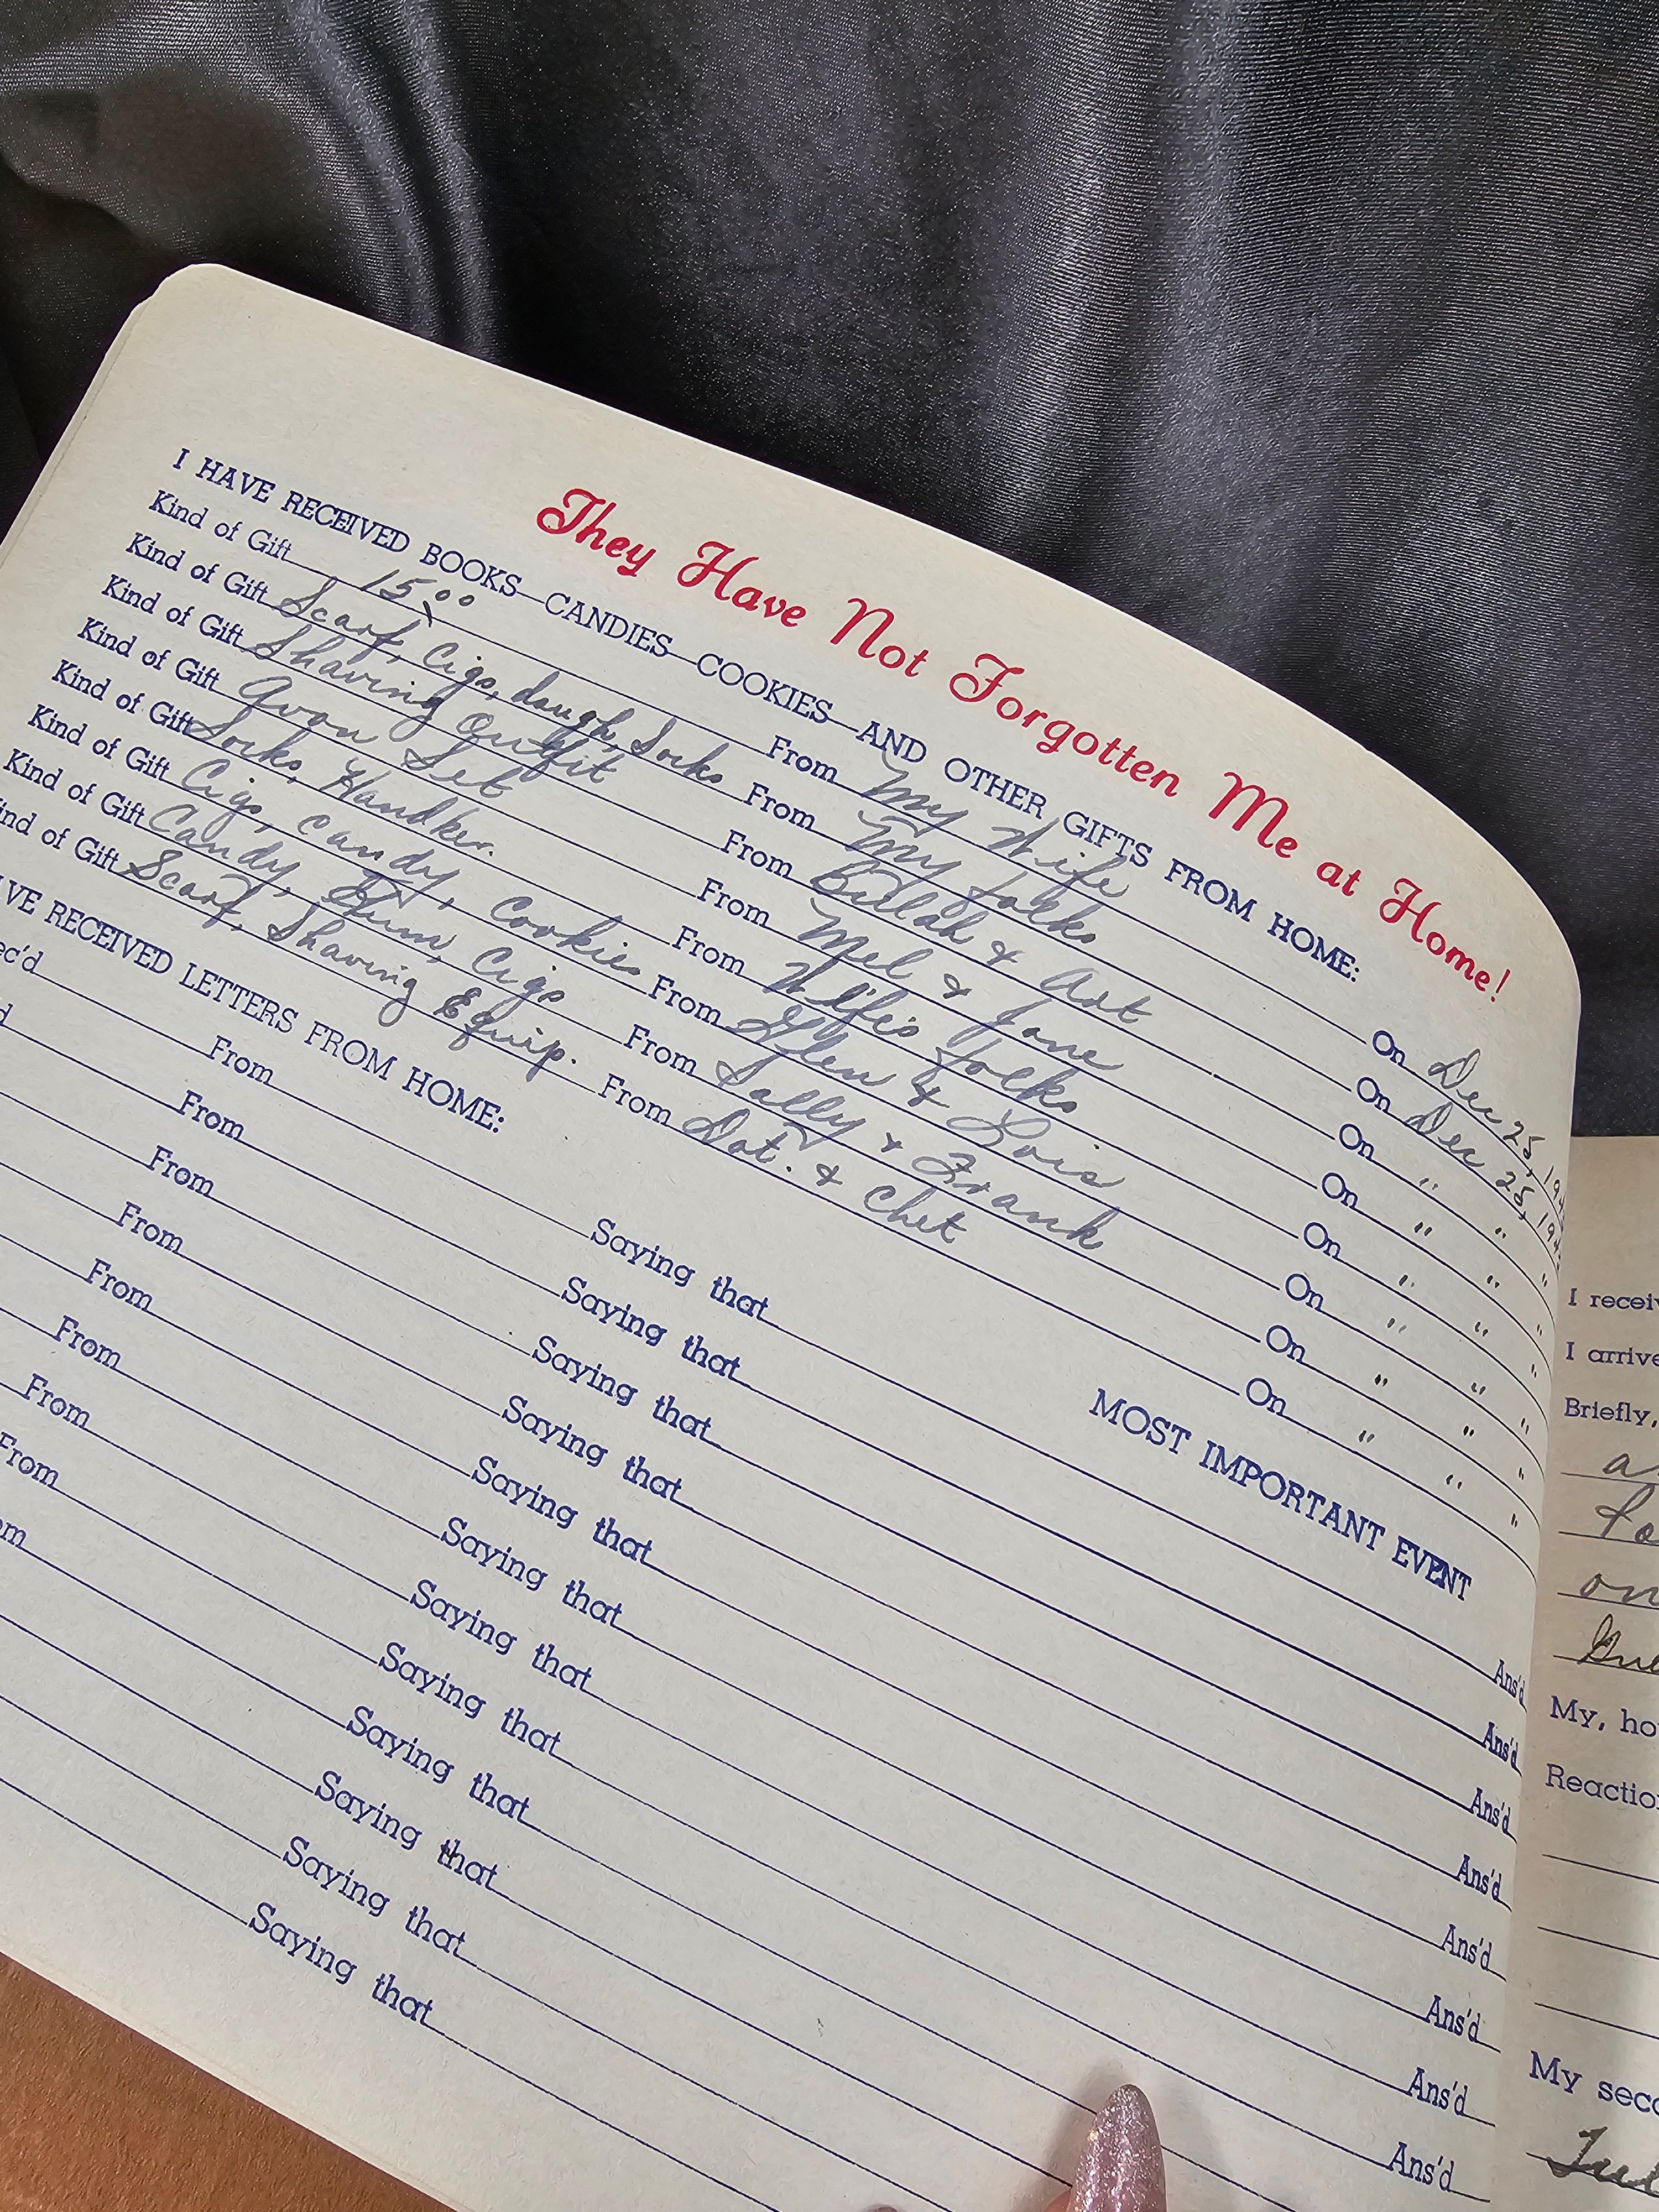 They Have Not Forgotten Me at Home!
I HAVE RECEIVED BOOKS—CANDIES—COOKIES—AND OTHER GIFTS FROM HOME:
Kind of Gift 15.00 From My Wife On Dec 25, 194
Kind of Gift Scarf, Cigs, dough, Socks From My folks On Dec 25, 194
Kind of Gift Shaving Outfit From & Art On " " "
Kind of Gift Avon Set From Mel & Jane On " " "
Kind of Gift Socks, Handker. From Wife's folks On " " "
Kind of Gift Cigs, candy, Cookies From Glen & Lois On " " "
Kind of Gift Candy, Gum, Cigs From Sally & Frank On " " "
ind of Gift Scarf, Shaving Equip. From Dot. & Chet On " " "
VE RECEIVED LETTERS FROM HOME: MOST IMPORTANT EVENT
ec'd From Saying that Ans'd
d From Saying that Ans'd
From Saying that Ans'd
From Saying that Ans'd
From Saying that Ans'd
From Saying that Ans'd
From Saying that Ans'd
From Saying that Ans'd
om Saying that
Saying that
Saying that
Saying that
I receiv
I arrive
Briefly,
a
fo
on
My, ho
Reactio
My seco